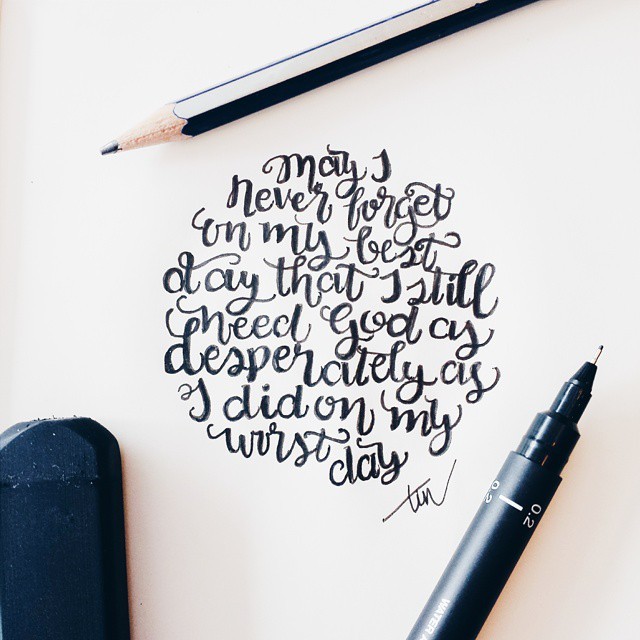 May I
never forget
on my best
day that I still
need God as
desperately as
I did on my
worst
day
tin
0.2
0.2
WATER